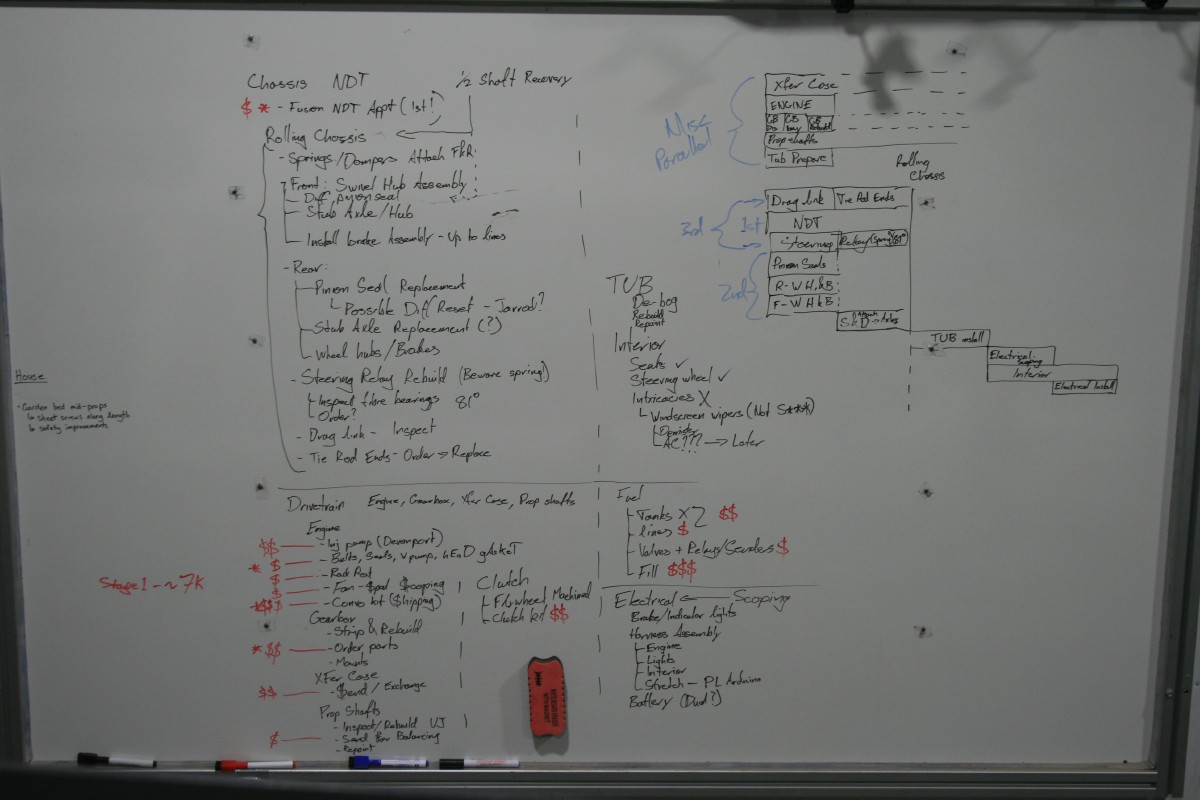 Chassis NDT
1/2 Shaft Recovery
$ * - Fusion NDT Appt (1st!)
Rolling Chassis
- Springs/Dampers Attach F&R
- Front: Swivel Hub Assembly
- Diff pinion seal
- Stub Axle/Hub
- Install brake Assembly - Up to lines
- Rear:
- Pinion Seal Replacement
Possible Diff Reset - Jarrod?
- Stub Axle Replacement (?)
- Wheel hubs/Brakes
- Steering Relay Rebuild (Beware spring!)
- Inspect fibre bearings 81°
- Order?
- Drag link - Inspect
- Tie Rod Ends - Order → Replace
House
- Garden bed mid-props
Sheet screws along length
safety improvements
Drivetrain Engine, Gearbox, Xfer Case, Prop shafts
Engine
$$ - Inj pump (Devenport)
* $ - Bolts, Seals, v pump, hEaD gAskeT
$ - Rad Rod
$ - Fan - $pal $coping
*$$$ - Convo kit ($hipping)
Stage 1 - ~ 7K
Gearbox
- Strip & Rebuild
*$$ - Order parts
- Mounts
XFer Case
$$ - $end / Exchange
Prop Shafts
- Inspect/Rebuild UJ
$ - Send for Balancing
- Repaint
Clutch
- Flywheel Machined
- Clutch kit $$
TUB
De-bog
Rebuild
Repaint
Interior
Seats ✓
Steering wheel ✓
Intricacies X
Windscreen wipers (Not S***)
Demister
AC??? → Later
Fuel
- Tanks X2 $$
- lines $
- Valves + Relays/Senders $
- Fill $$$
Electrical ← Scoping
Brake/Indicator lights
Harness Assembly
- Engine
- Lights
- Interior
- Stretch - PL Arduino
Battery (Dual?)
Misc
Parallel
Xfer Case
ENGINE
GB GB GB Rebuild
Prop shafts
Tub Prepare
Rolling
Chassis
3rd
1st
2nd
Drag link Tie Rod Ends
NDT
Steering Relay (Spring) 81°
Pinion Seals
R - W H & B
F - W H & B
S & D Attach → Axles
TUB install
Electrical Scoping
Interior
Electrical Install